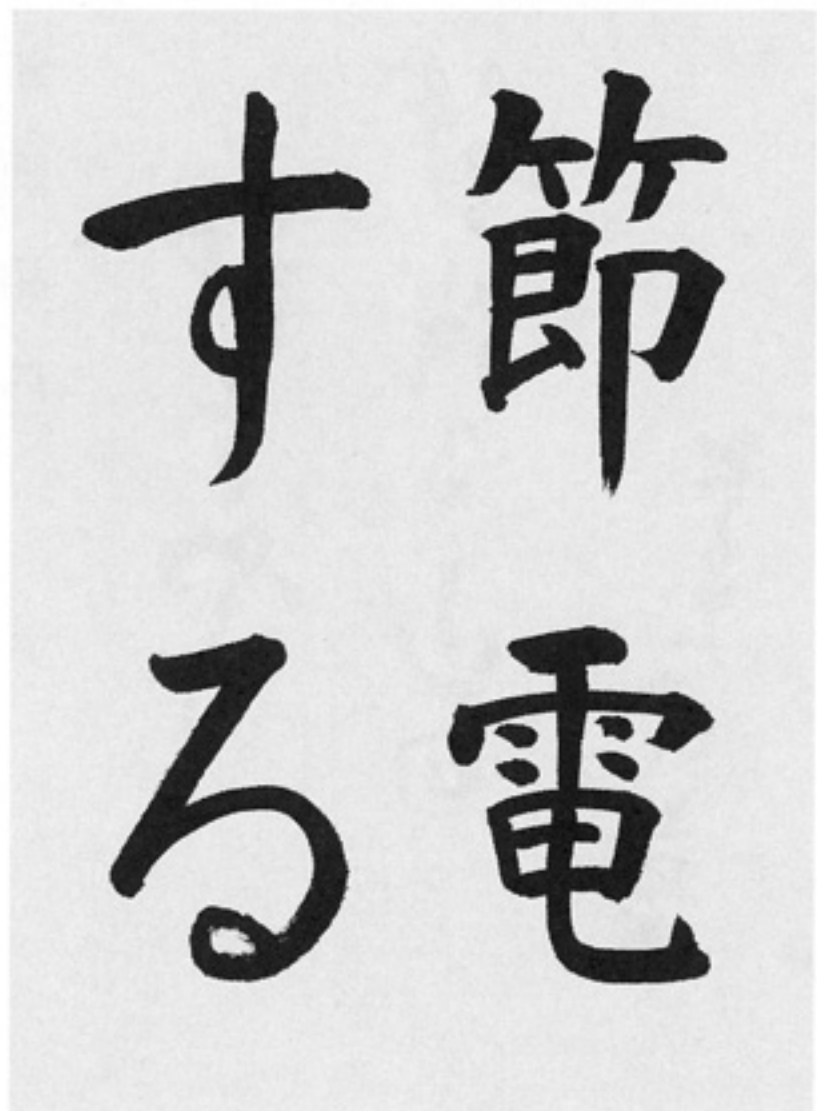 節電
する